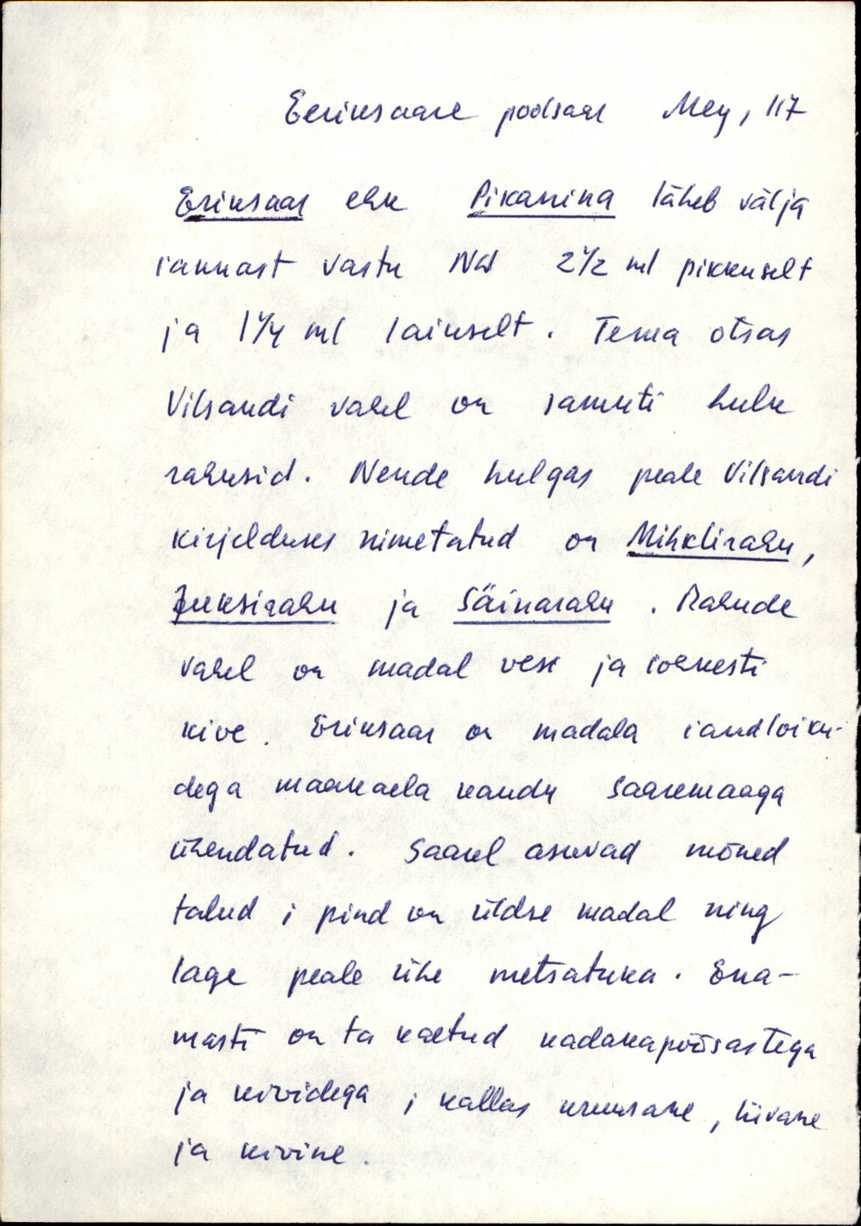 Eeriksaare poolsaar Mey, 117
Eriksaar ehk Pikanina läheb välja
rannast vastu NW 2½ ml pikkuselt
ja 1¼ ml laiuselt. Tema otsas
Vilsandi vahel on samuti hulk
rahusid. Nende hulgas peale Vilsandi
kirjelduses nimetatud on Mihklirahu,
Juksirahu ja Säinarahu. Rahude
vahel on madal vesi ja rohkesti
kive. Eriksaar on madala randloiku-
dega maakaela kaudu Saaremaaga
ühendatud. Saarel asuvad mõned
talud; pind on üldse madal ning
lage peale ühe metsatuka. Ena-
masti on ta kaetud kadakapõõsastega
ja kividega; kallas kruusane, liivane
ja kivine.